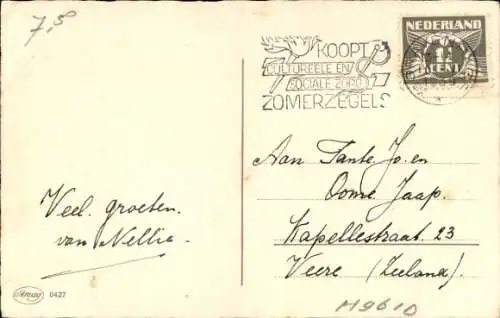 7,5
NEDERLAND
1½
CENT
KOOPT
CULTUREELE EN
SOCIALE ZORG
ZOMERZEGELS
Aan Tante Jo. en
Oome Jaap.
Kapellestraat 23
Veere (Zeeland.)
Veel. groeten.
van Nellie.
0427